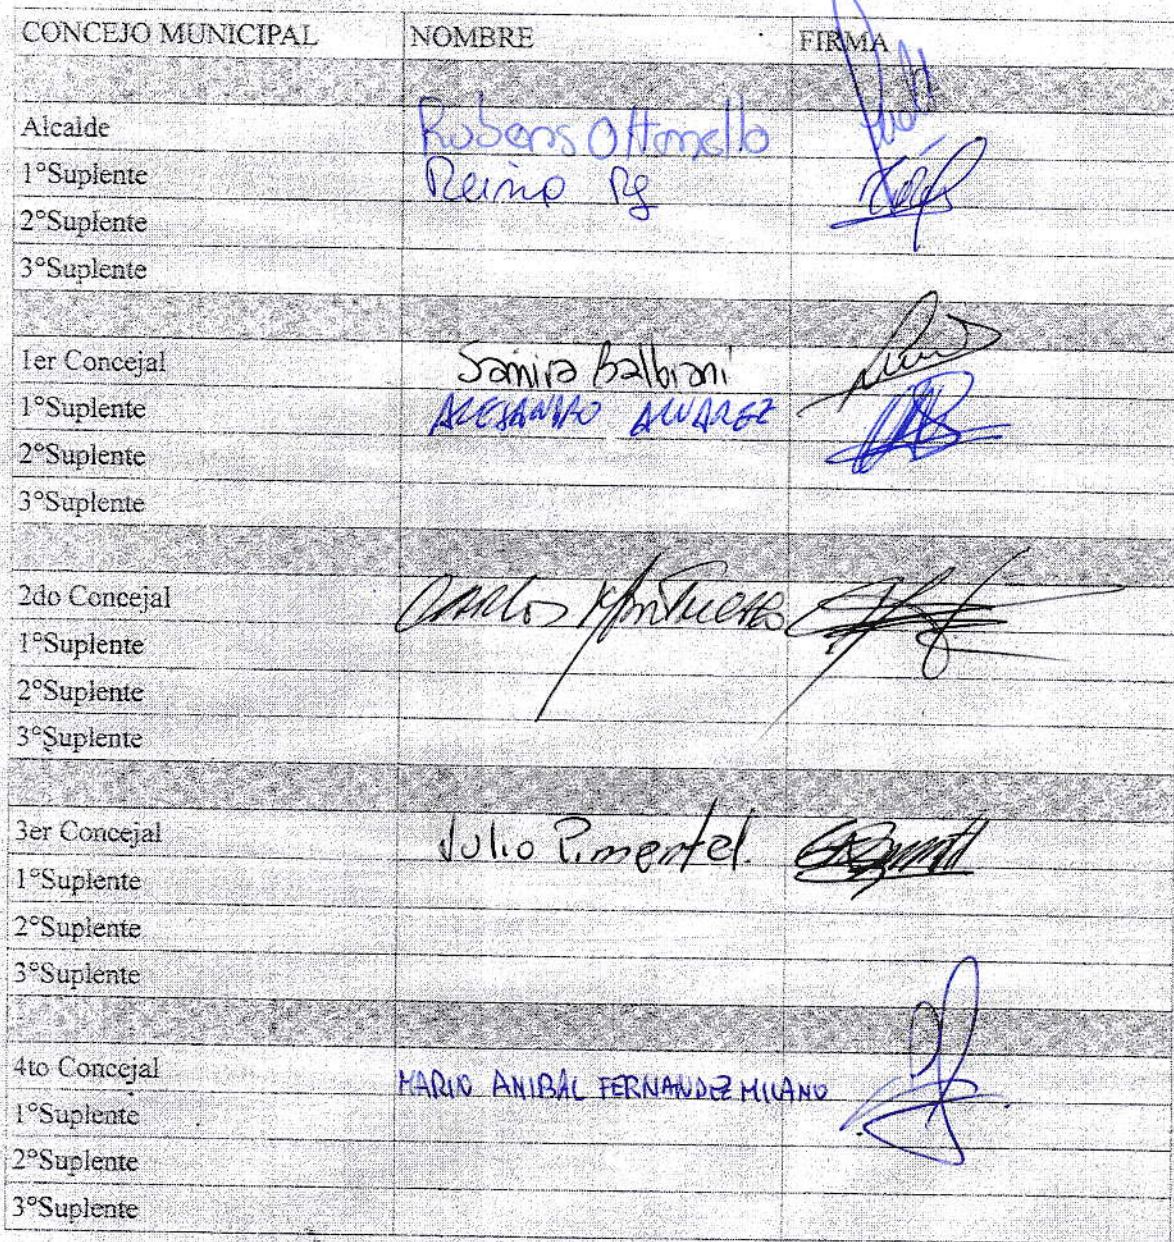 CONCEJO MUNICIPAL NOMBRE FIRMA
Alcalde Rubens Ottonello
1°Suplente Reino
2°Suplente
3°Suplente
1er Concejal Samira Balbiani
1°Suplente ALEJANDRO ALVAREZ
2°Suplente
3°Suplente
2do Concejal CARLOS
1°Suplente
2°Suplente
3°Suplente
3er Concejal Julio Pimentel.
1°Suplente
2°Suplente
3°Suplente
4to Concejal MARIO ANIBAL FERNANDEZ MILANO
1°Suplente
2°Suplente
3°Suplente